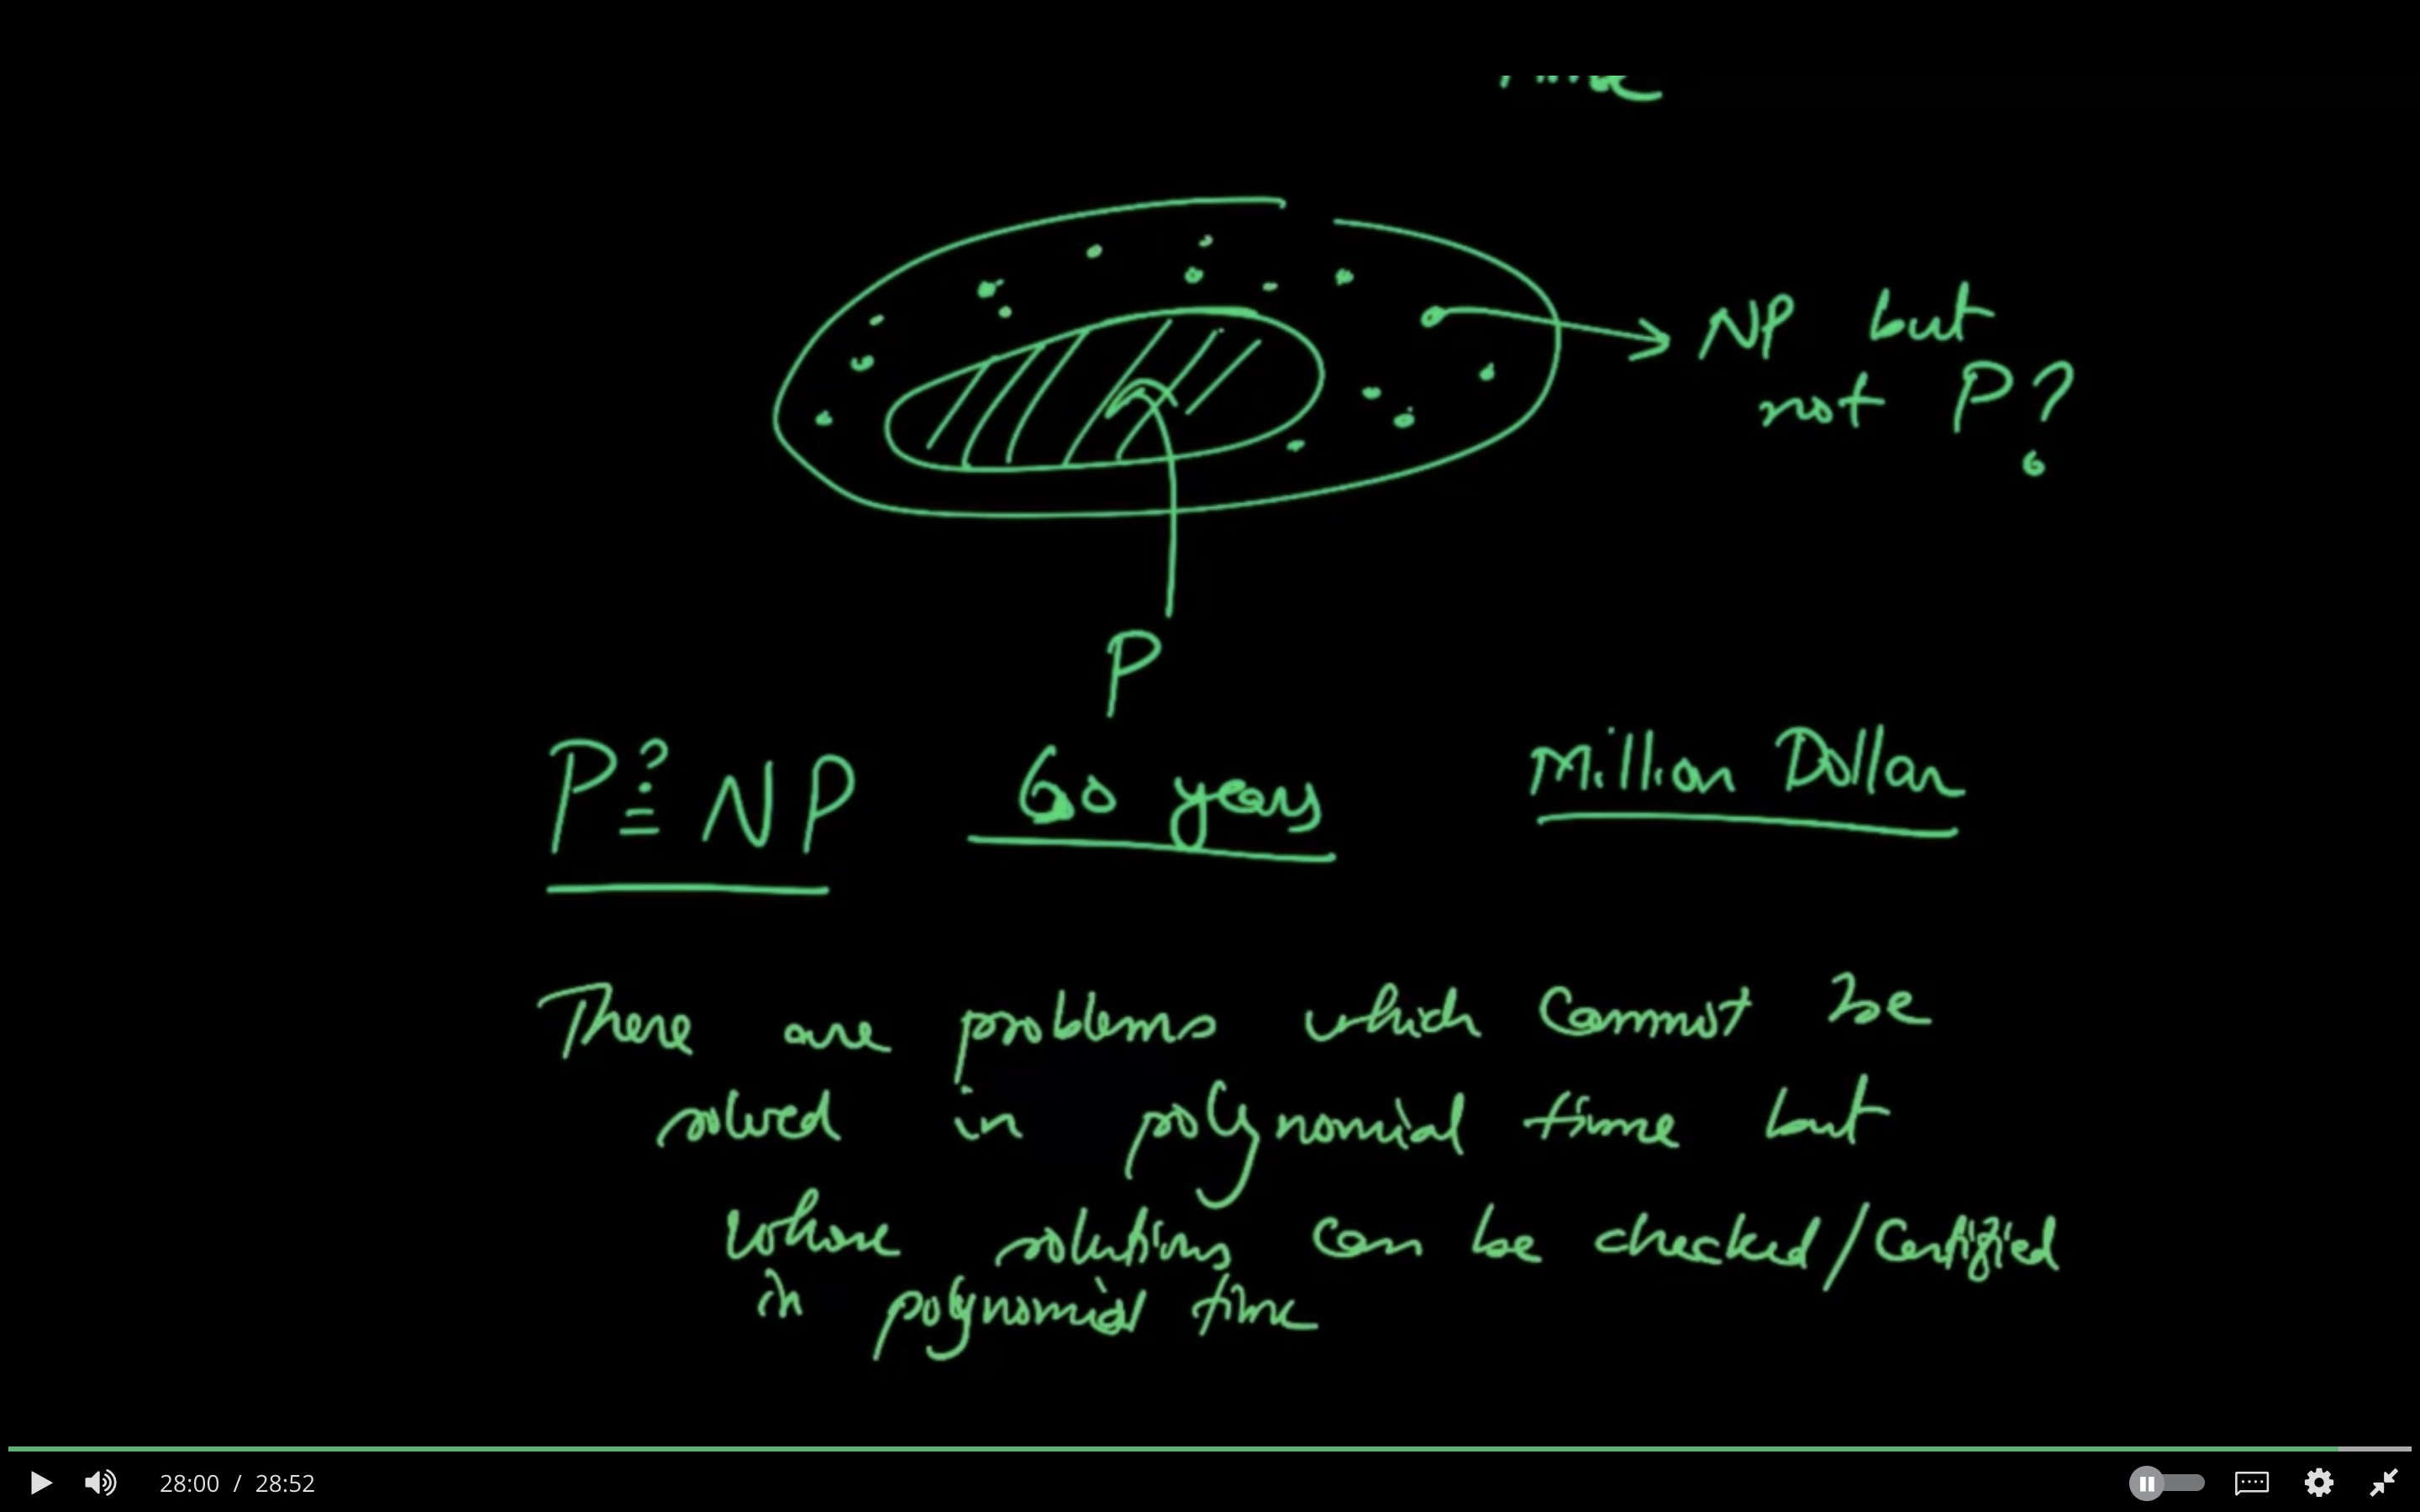 NP but
not P?
P
P ?= NP 60 years Million Dollar
There are problems which cannot be
solved in polynomial time but
whose solutions can be checked/certified
in polynomial time
28:00 / 28:52